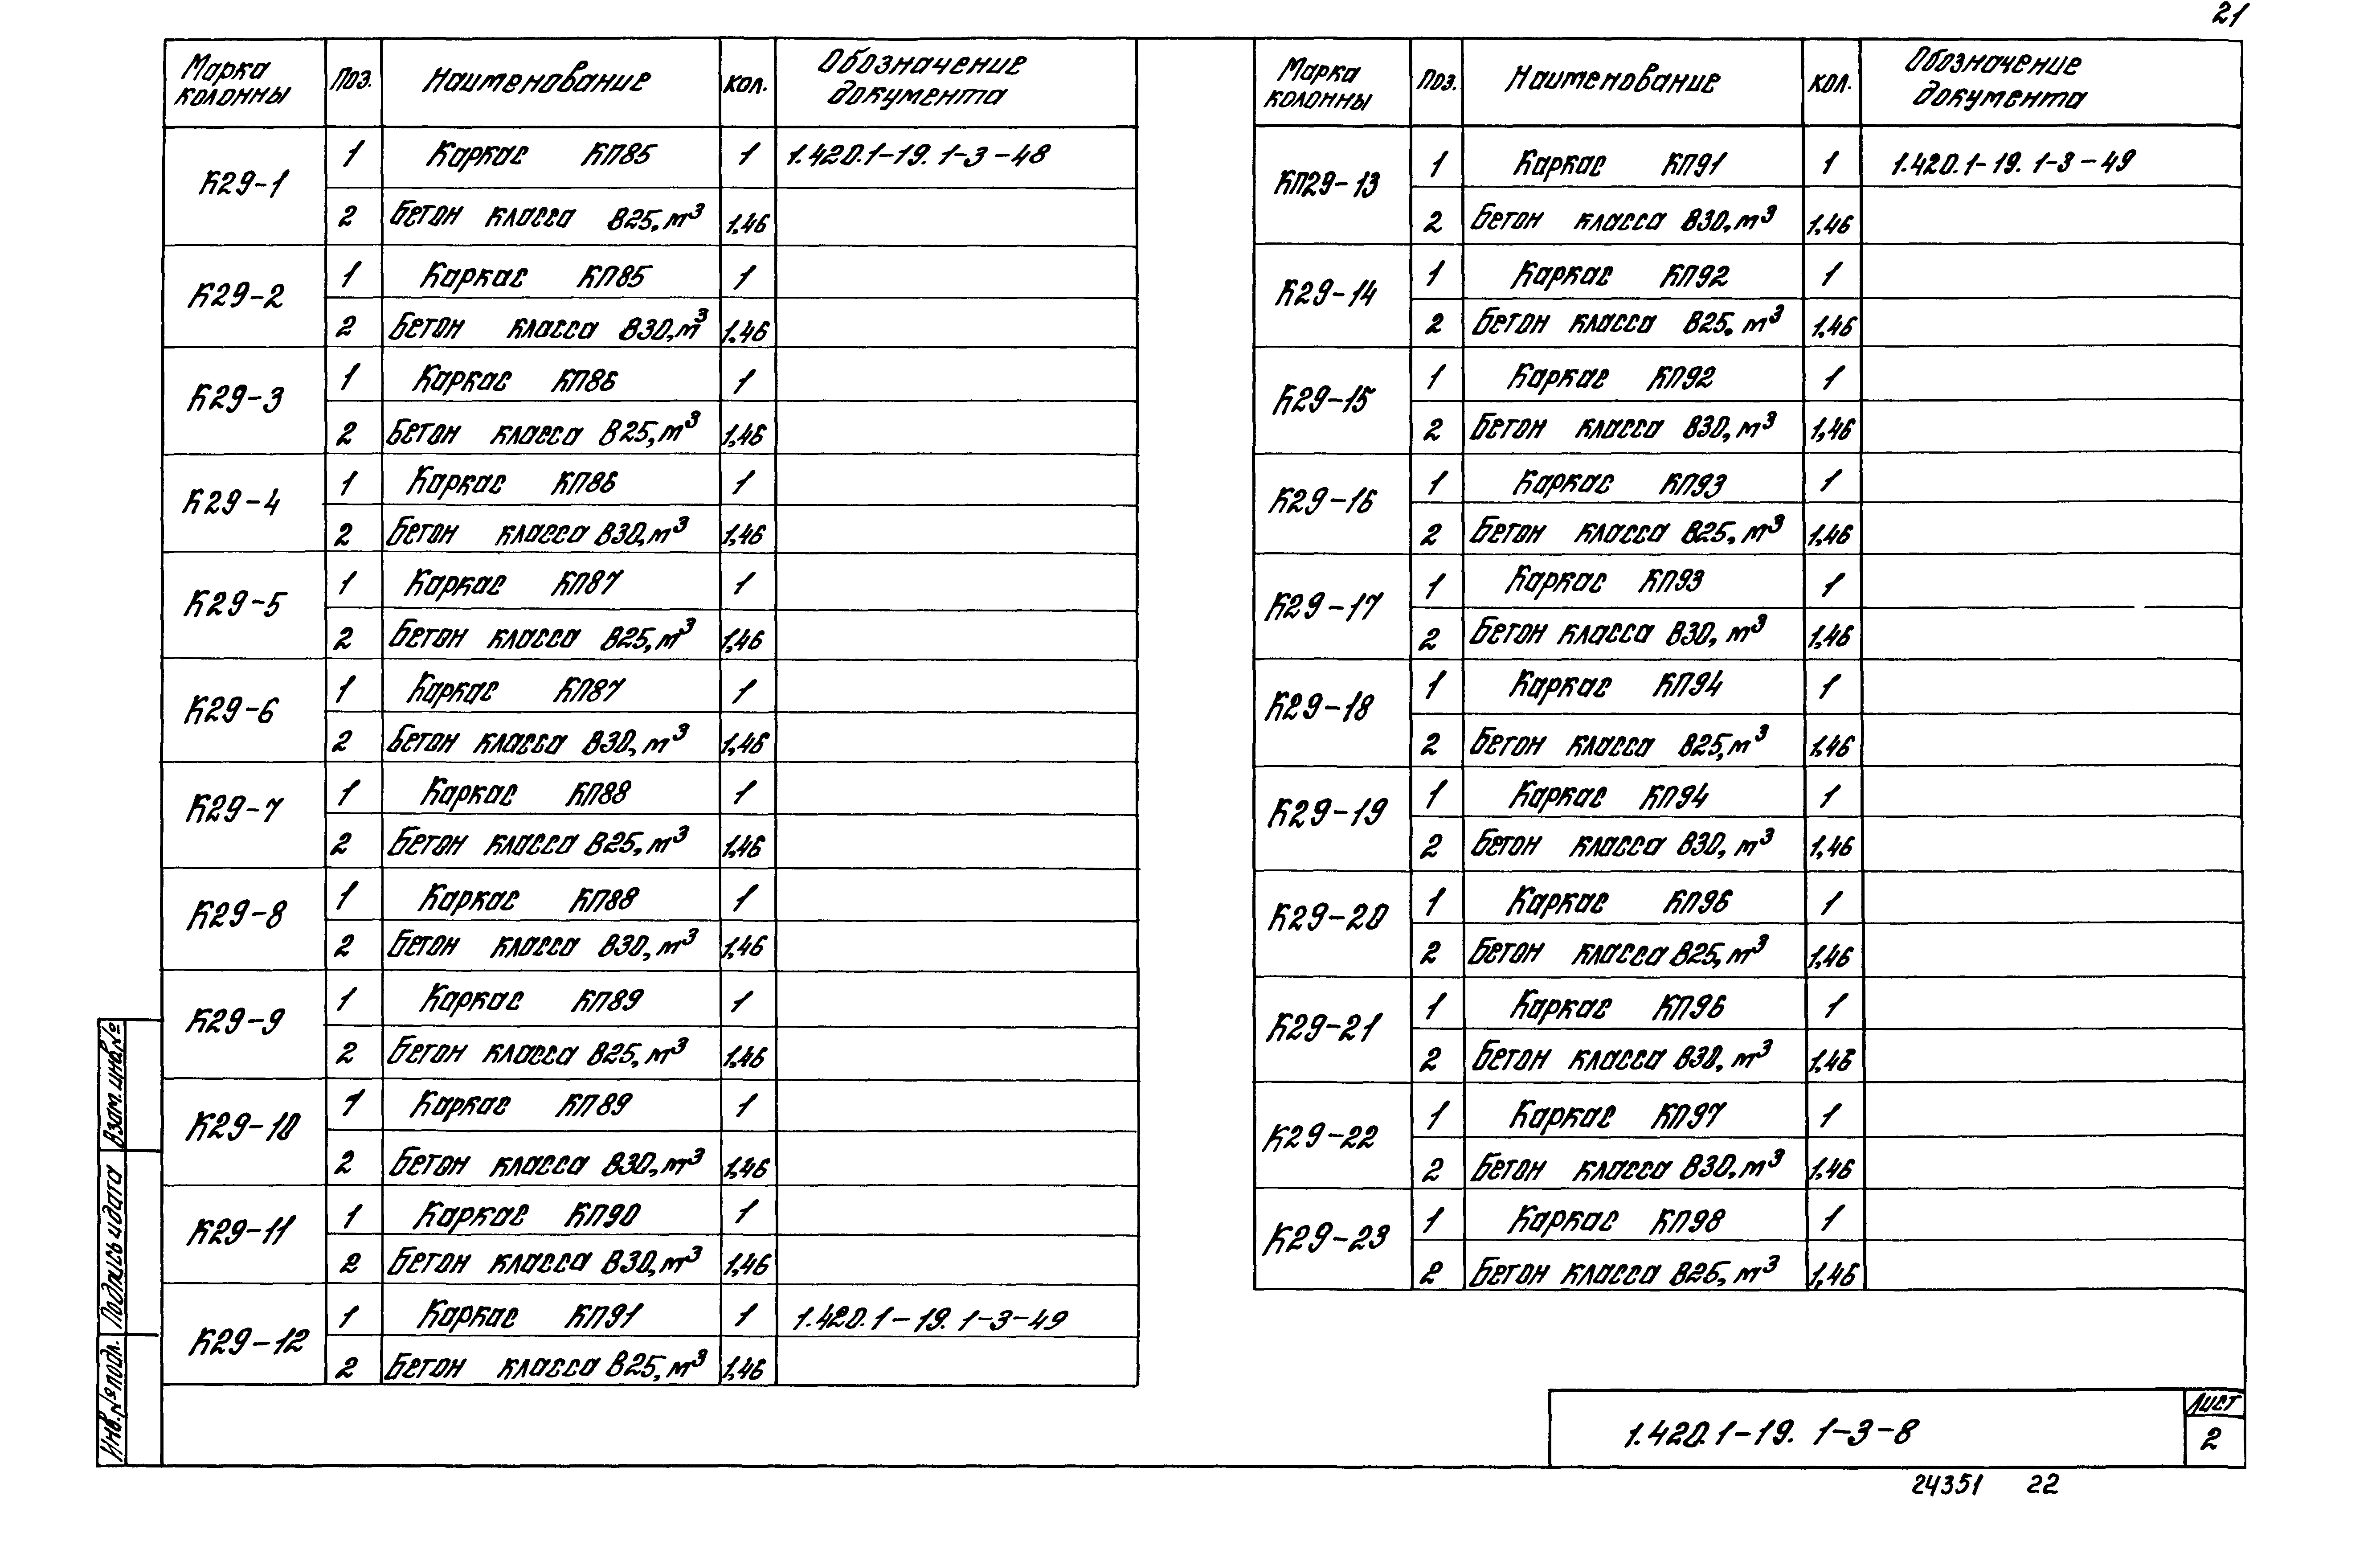 21
Марка колонны Поз. Наименование кол. Обозначение документа
К29-1 1 Каркас КП85 1 1.420.1-19. 1-3-48
2 Бетон класса В25, м³ 1,46
К29-2 1 Каркас КП85 1
2 Бетон класса В30, м³ 1,46
К29-3 1 Каркас КП86 1
2 Бетон класса В25, м³ 1,46
К29-4 1 Каркас КП86 1
2 Бетон класса В30, м³ 1,46
К29-5 1 Каркас КП87 1
2 Бетон класса В25, м³ 1,46
К29-6 1 Каркас КП87 1
2 Бетон класса В30, м³ 1,46
К29-7 1 Каркас КП88 1
2 Бетон класса В25, м³ 1,46
К29-8 1 Каркас КП88 1
2 Бетон класса В30, м³ 1,46
К29-9 1 Каркас КП89 1
2 Бетон класса В25, м³ 1,46
К29-10 1 Каркас КП89 1
2 Бетон класса В30, м³ 1,46
К29-11 1 Каркас КП90 1
2 Бетон класса В30, м³ 1,46
К29-12 1 Каркас КП91 1 1.420.1-19. 1-3-49
2 Бетон класса В25, м³ 1,46
Марка колонны Поз. Наименование кол. Обозначение документа
КП29-13 1 Каркас КП91 1 1.420.1-19. 1-3-49
2 Бетон класса В30, м³ 1,46
К29-14 1 Каркас КП92 1
2 Бетон класса В25, м³ 1,46
К29-15 1 Каркас КП92 1
2 Бетон класса В30, м³ 1,46
К29-16 1 Каркас КП93 1
2 Бетон класса В25, м³ 1,46
К29-17 1 Каркас КП93 1
2 Бетон класса В30, м³ 1,46
К29-18 1 Каркас КП94 1
2 Бетон класса В25, м³ 1,46
К29-19 1 Каркас КП94 1
2 Бетон класса В30, м³ 1,46
К29-20 1 Каркас КП96 1
2 Бетон класса В25, м³ 1,46
К29-21 1 Каркас КП96 1
2 Бетон класса В30, м³ 1,46
К29-22 1 Каркас КП97 1
2 Бетон класса В30, м³ 1,46
К29-23 1 Каркас КП98 1
2 Бетон класса В25, м³ 1,46
Взам. инв. №
Подпись и дата
Инв. № подл.
1.420.1-19. 1-3-8
Лист
2
24351 22